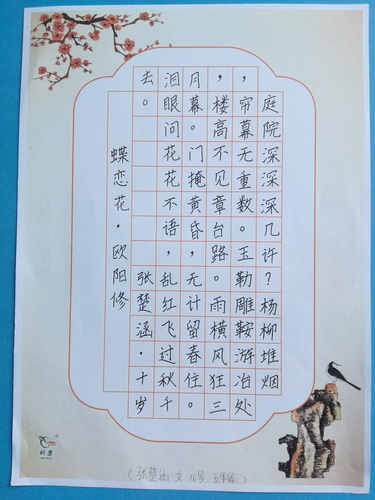 蝶恋花·欧阳修
庭院深深深几许？杨柳堆烟
，帘幕无重数。玉勒雕鞍游冶处
，楼高不见章台路。雨横风狂三
月幕。门掩黄昏，无计留春住。
泪眼问花花不语，乱红飞过秋千
去。
张楚涵·十岁